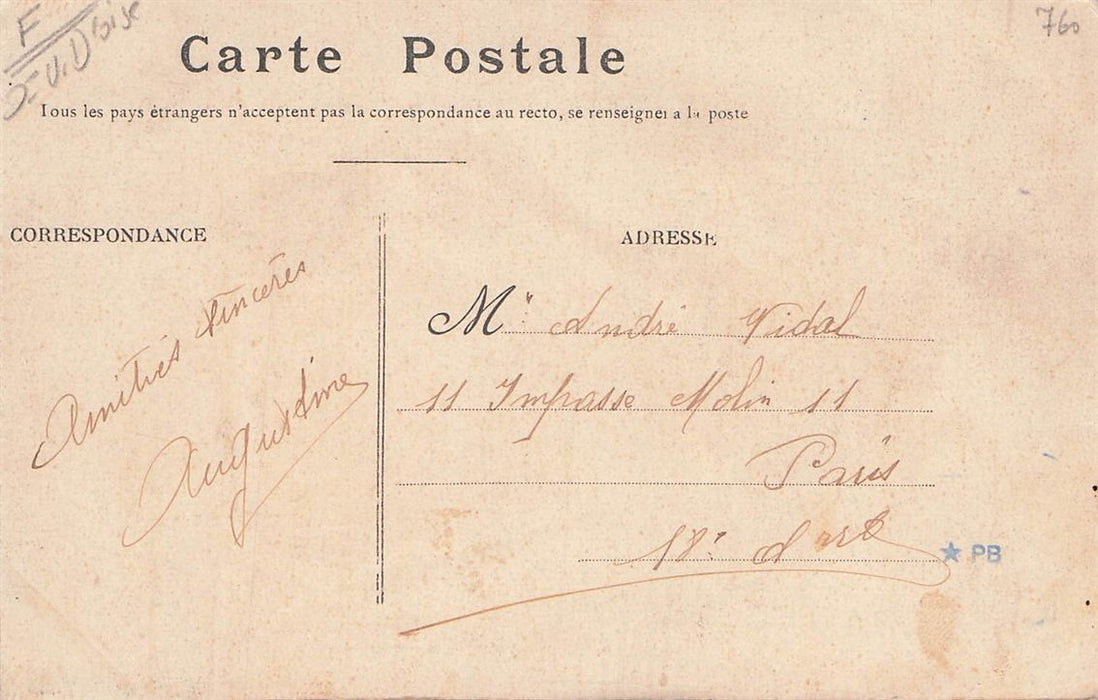 F
760
Carte Postale
Tous les pays étrangers n'acceptent pas la correspondance au recto, se renseigner a la poste
CORRESPONDANCE
Amitiés sincères
Augustine
ADRESSE
Mr André Vidal
11 Impasse Molin 11
Paris
18e Arrt
★ PB